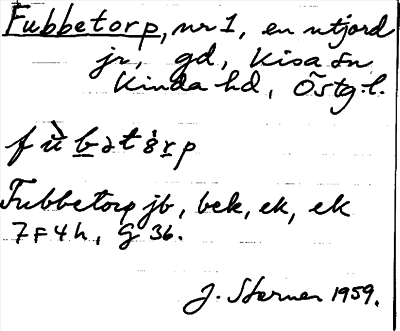 Fubbetorp, nr 1, en utjord
jr, gd, Kisa sn,
Kinda hd, Östg. l.
Fubbetorp jb, bek, ek, ek
7F4h, G 36.
J. Sterner 1959.